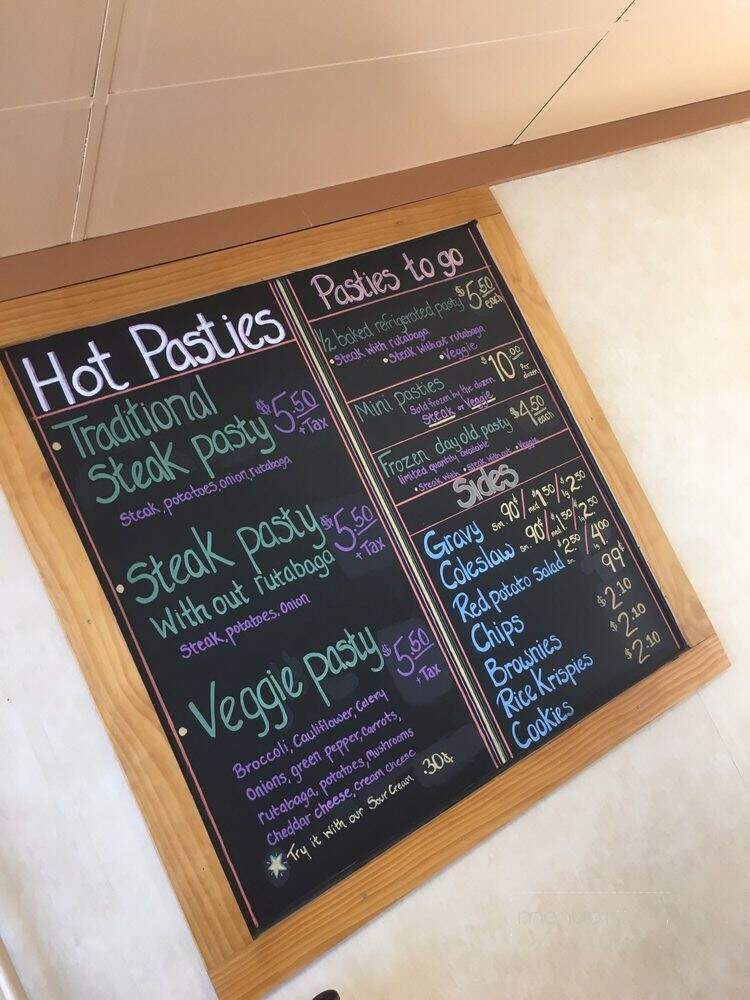 Hot Pasties
Traditional
Steak pasty $5.50
+ Tax
Steak, potatoes, onion, rutabaga
Steak pasty $5.50
+ Tax
With out rutabaga
Steak, potatoes, onion
Veggie pasty $5.50
+ Tax
Broccoli, Cauliflower, Celery
Onions, green pepper, Carrots,
rutabaga, potatoes, Mushrooms
Cheddar cheese, cream cheese
Try it with our Sour Cream .30¢
Pasties to go
1/2 baked refrigerated pasty $5.50
each
• Steak with rutabaga
• Steak without rutabaga
• Veggie
Mini pasties $10.00
Per dozen
Sold frozen by the dozen.
Steak or Veggie
Frozen day old pasty $4.50
each
limited quantity available
• Steak with • Steak with out • Veggie
Sides
Gravy sm. 90¢/ med $1.50/ lg $2.50
Coleslaw sm. 90¢/ med $1.50/ lg $2.50
Red potato Salad sm $2.50/ lg 4.00
Chips 99¢
Brownies $2.10
Rice Krispies $2.10
Cookies $2.10